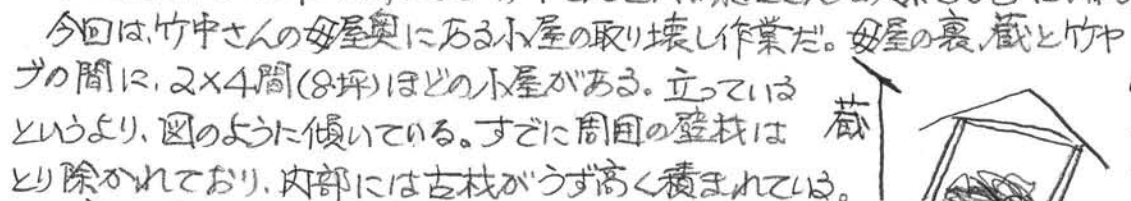 今回は、竹中さんの母屋奥にある小屋の取り壊し作業だ。母屋の裏、蔵と竹ヤ
ブの間に、2×4間(8坪)ほどの小屋がある。立っている
というより、図のように傾いている。すでに周囲の壁材は
とり除かれており、内部には古材がうず高く積まれている。
蔵